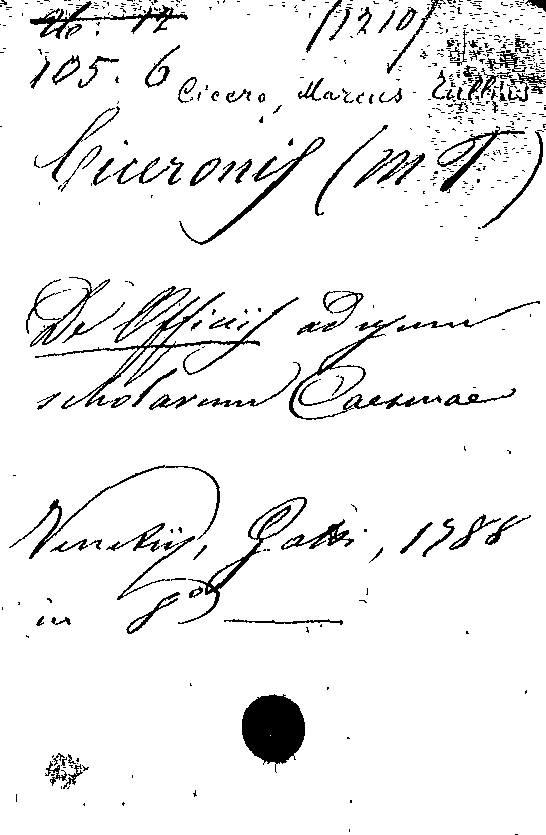 Ub: 12 (1210)
105. 6
Cicero, Marcus Tullius
Ciceronis (M. T.)
De Officiis ad usum
scholarum Caesenae
Venetiis, Gatti, 1788
in 8°